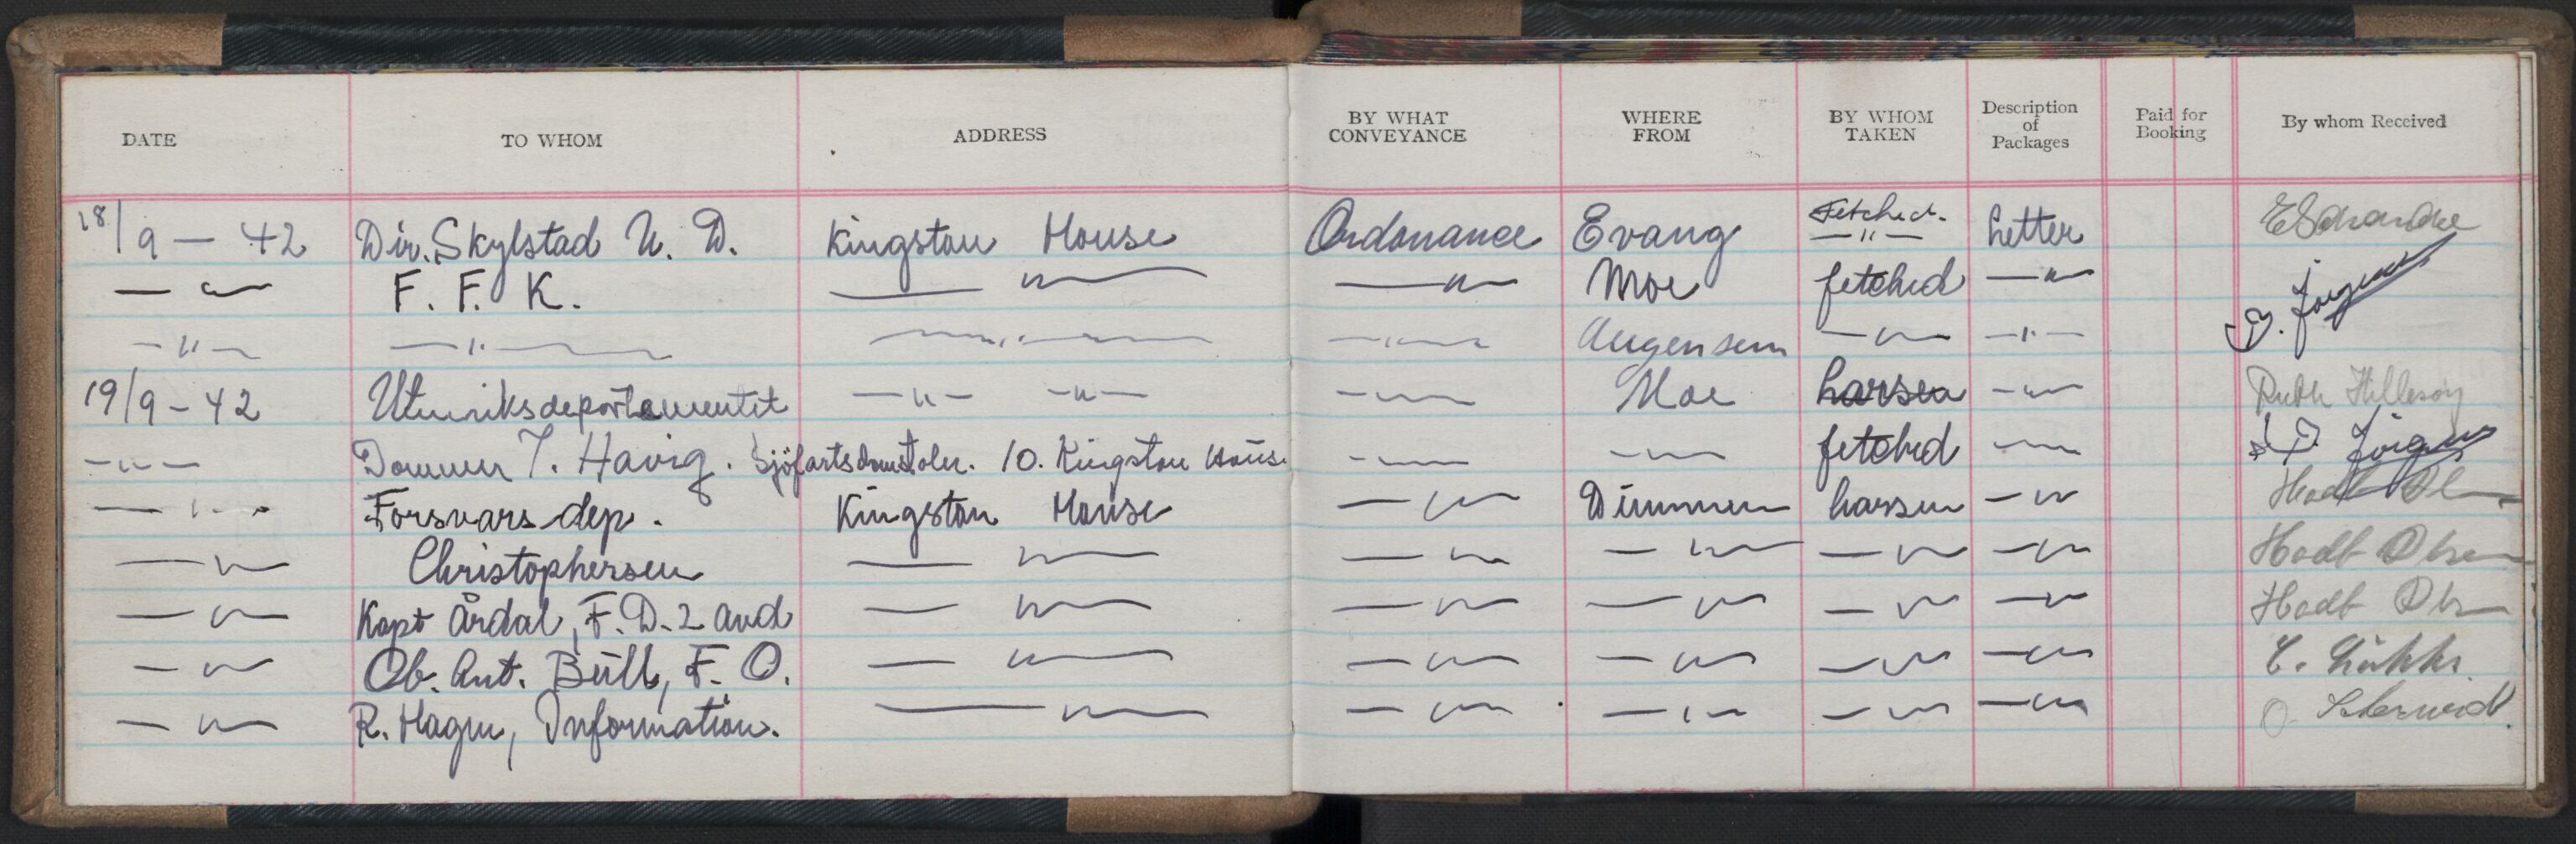 DATE TO WHOM ADDRESS BY WHAT CONVEYANCE WHERE FROM BY WHOM TAKEN Description of Packages Paid for Booking By whom Received
18/9 — 42 Dir. Skylstad U. D. Kingston House Ordonance Evang Fetched. — " — Letter
— " — F. F. K. — " — — " — Moe fetched — " —
— " — — " — — " — — " — Augensen — " — — " —
19/9 - 42 Utenriksdepartementet — " — — " — — " — Moe Larsen — " — Ruth Hillesøy
— " — Dommer T. Havig. Sjöfartsdomstolen. 10. Kingston Hous. — " — — " — fetched — " —
— " — Forsvars dep. Kingston House — " — Dimmen Larsen — " —
— " — Christophersen — " — — " — — " — — " — — " — Hodt Olsen
— " — Kapt Årdal, F.D. 2 avd — " — — " — — " — — " — — " — Hodt Olsen
— " — Ob. Ant. Büll, F. O. — " — — " — — " — — " — — " —
— " — R. Hagen, Information. — " — — " — — " — — " — — " —